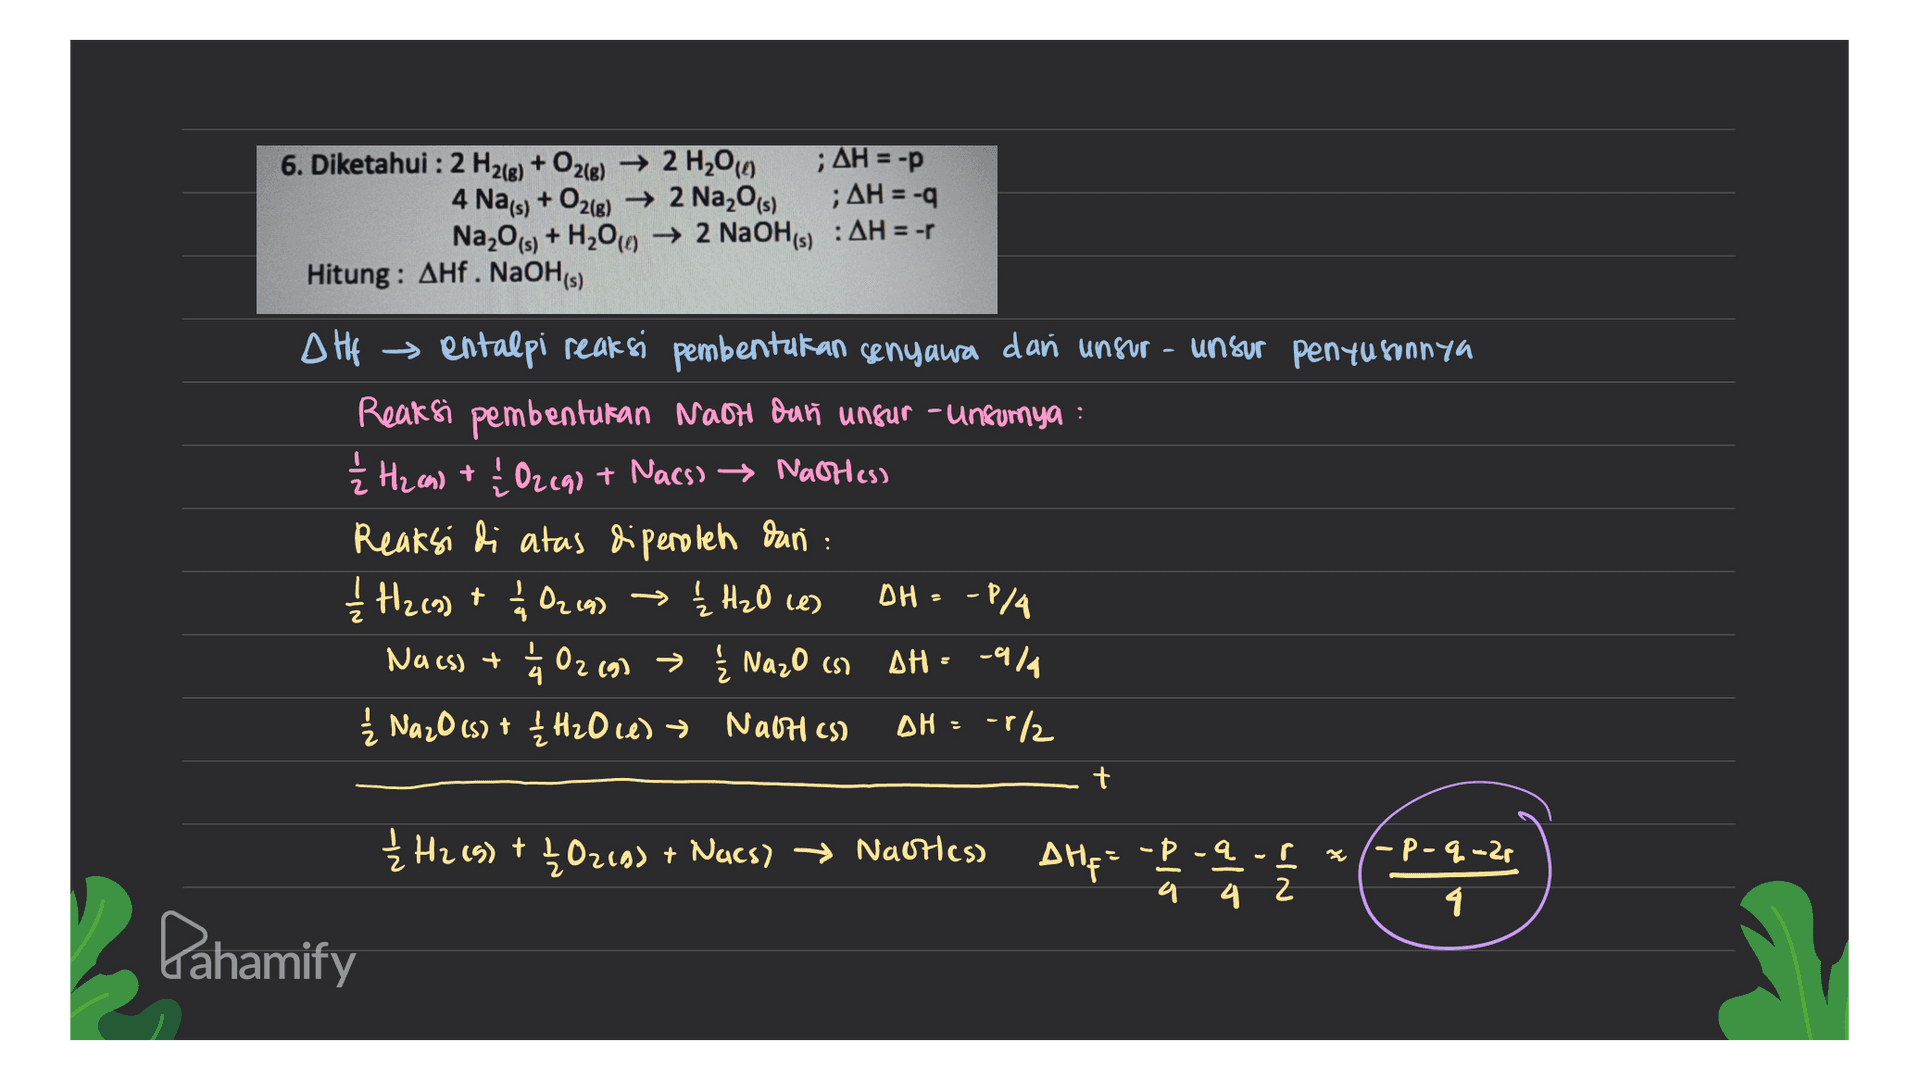 6. Diketahui : 2 H₂(g) + O₂(g) → 2 H₂O(ℓ) ; ΔH = -p
4 Na(s) + O₂(g) → 2 Na₂O(s) ; ΔH = -q
Na₂O(s) + H₂O(ℓ) → 2 NaOH(s) : ΔH = -r
Hitung : ΔHf . NaOH(s)
ΔHf → entalpi reaksi pembentukan senyawa dari unsur - unsur penyusunnya
Reaksi pembentukan NaOH dari unsur - unsurnya :
½ H₂(g) + ½ O₂(g) + Na(s) → NaOH(s)
Reaksi di atas diperoleh dari :
½ H₂(g) + ¼ O₂(g) → ½ H₂O (l) ΔH = -P/4
Na(s) + ¼ O₂(g) → ½ Na₂O (s) ΔH = -q/4
½ Na₂O(s) + ½ H₂O(l) → NaOH(s) ΔH = -r/2
+
½ H₂(g) + ½ O₂(g) + Na(s) → NaOH(s) ΔHf = -P/4 - q/4 - r/2 ≈ (-P-q-2r)/4
Pahamify